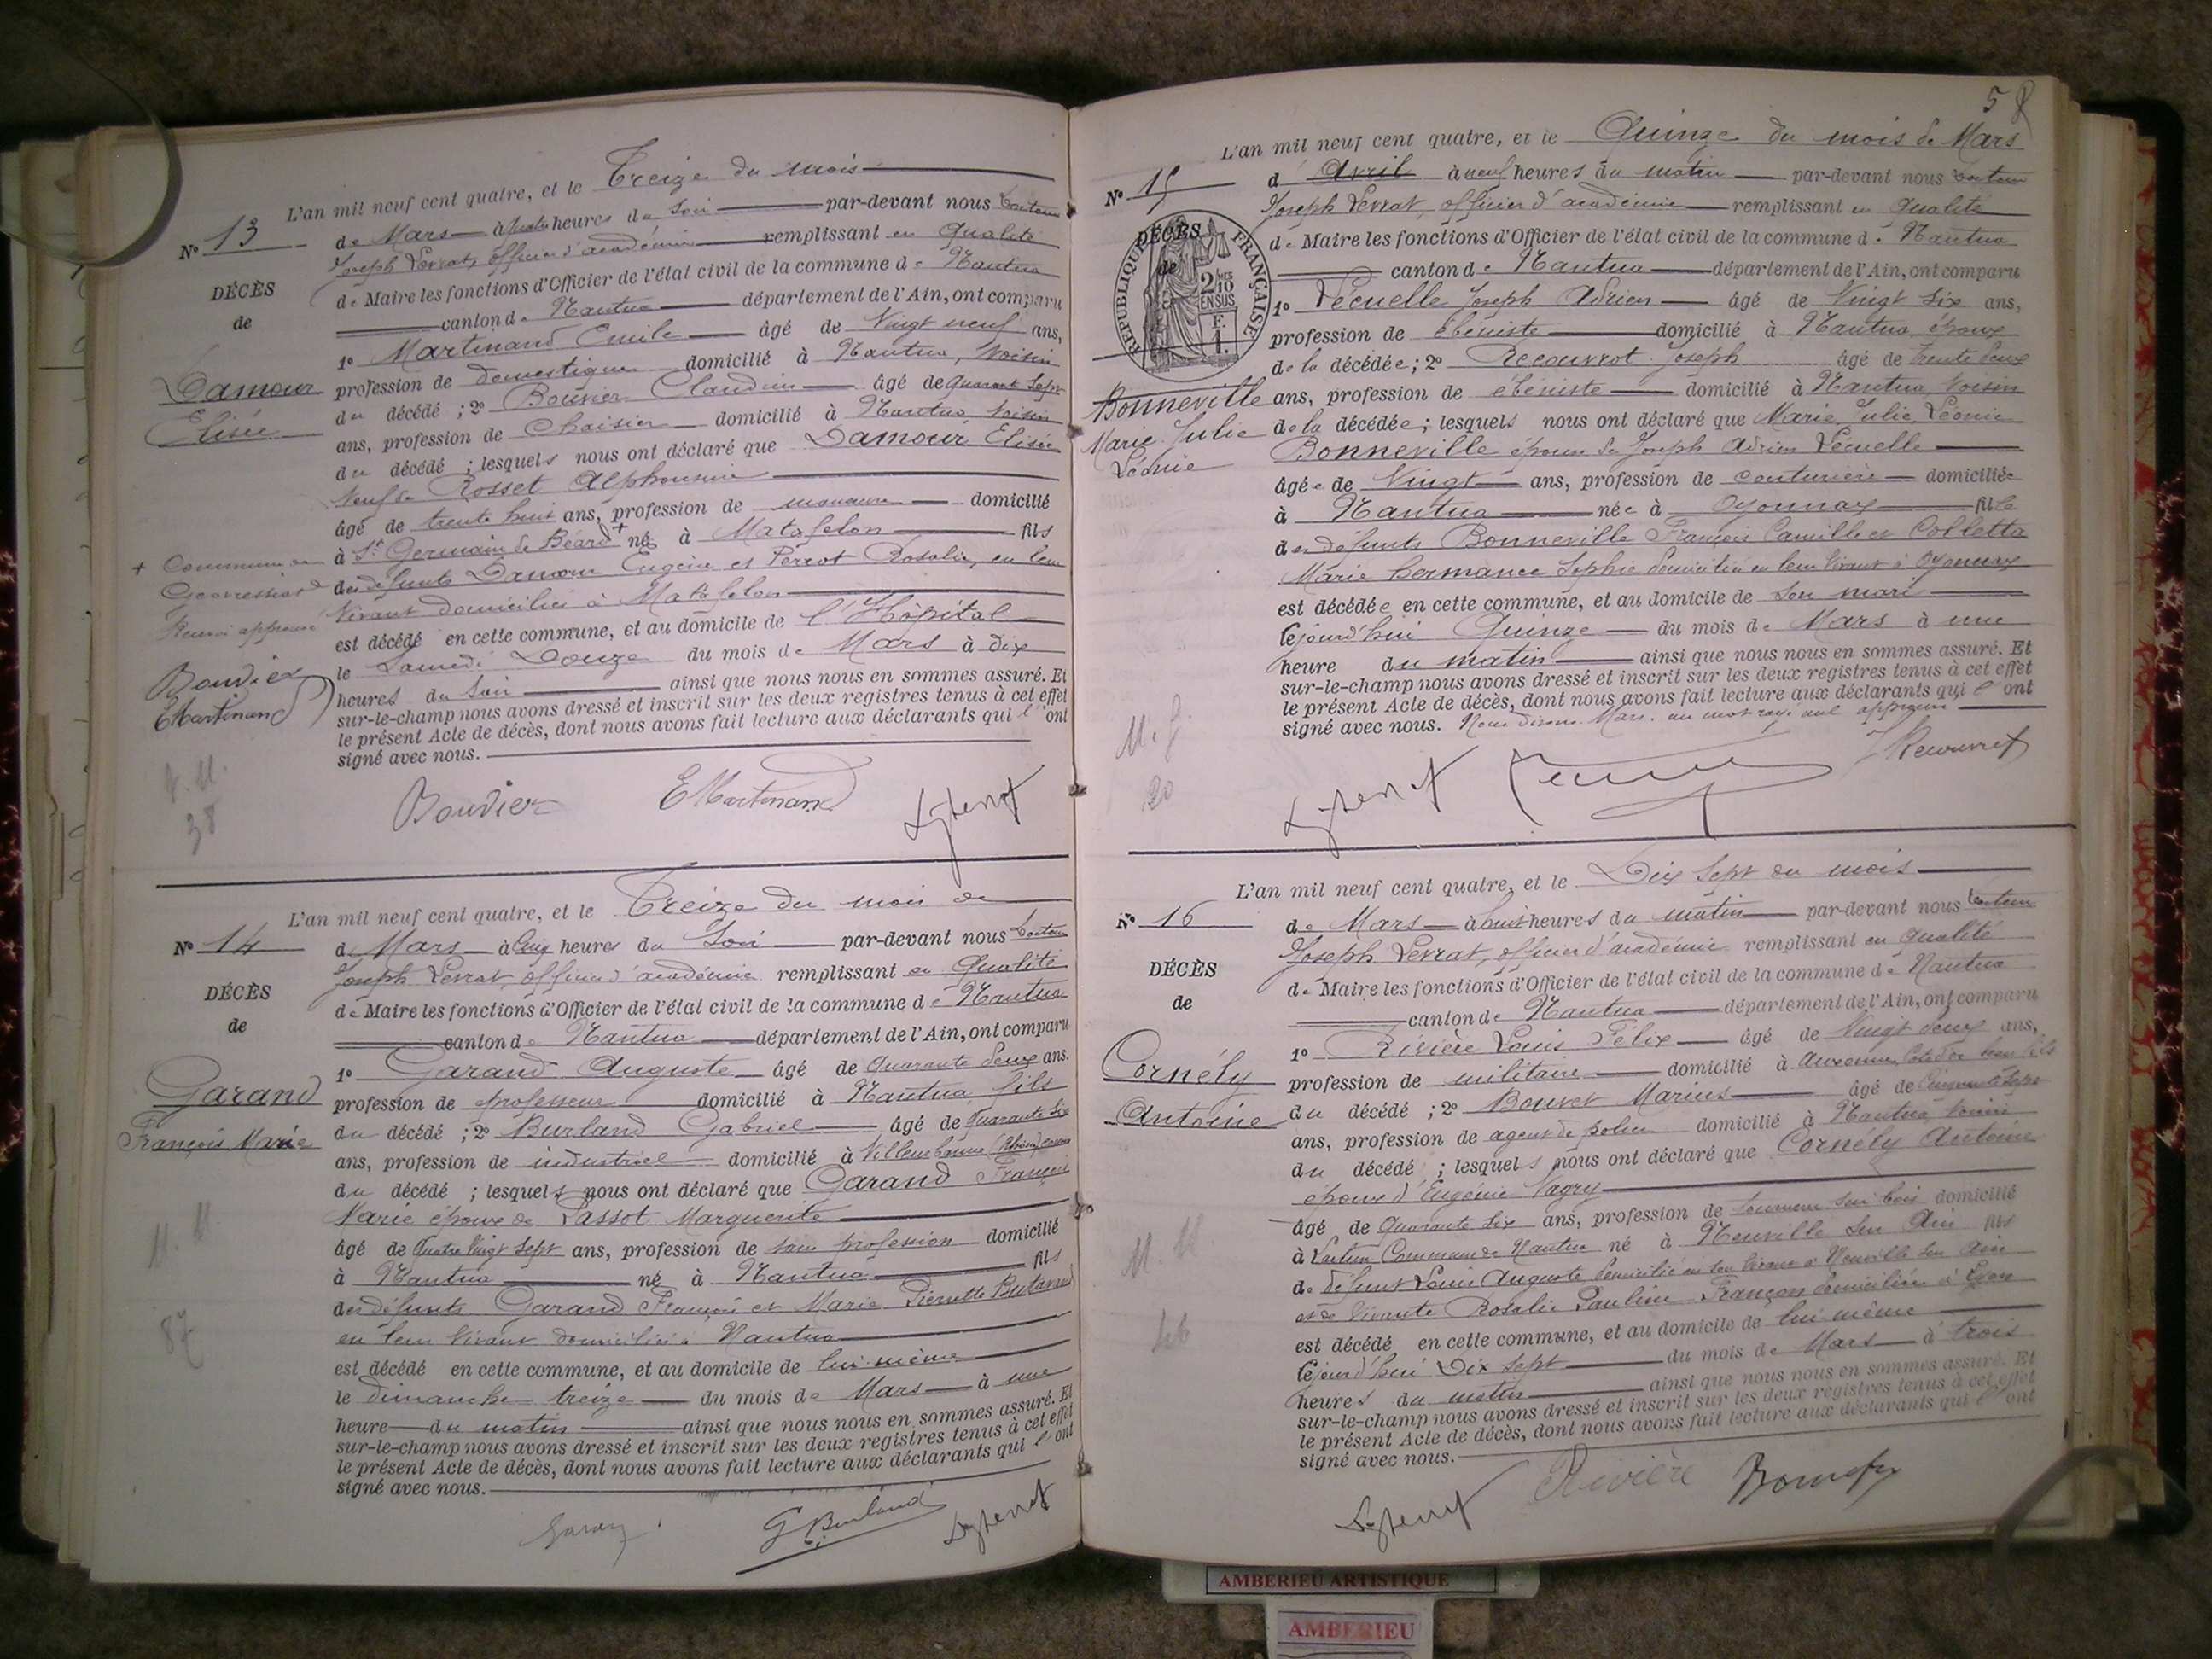 L'an mil neuf cent quatre, et le Treize du mois
N° 13
de Mars à heures du Soir par-devant nous Docteur
Joseph Levrat, officier d'académie remplissant en qualité
DÉCÈS
de Maire les fonctions d'Officier de l'état civil de la commune de Nantua
de
canton de Nantua département de l'Ain, ont comparu
1° Martinand Emile âgé de Vingt neuf ans,
Damour
Elisée
profession de domestique domicilié à Nantua, voisin
du décédé ; 2° Bouvier Claudin âgé de quarante sept
ans, profession de Chaisier domicilié à Nantua voisin
du décédé ; lesquels nous ont déclaré que Damour Elisée
veuf de Rosset Alphonsine
âgé de trente huit ans, profession de manœuvre domicilié
à St Germain de Béard + né à Matafelon fils
+ Commune de
Geovressiat
Renvoi approuvé
des défunts Damour Eugène et Perrot Rosalie, en leur
vivant domiciliés à Matafelon
est décédé en cette commune, et au domicile de l'Hôpital
le Samedi Douze du mois de Mars à dix
Bouvier
EMartinand
heures du Soir ainsi que nous nous en sommes assuré. Et
sur-le-champ nous avons dressé et inscrit sur les deux registres tenus à cet effet
le présent Acte de décès, dont nous avons fait lecture aux déclarants qui l'ont
signé avec nous.
38
Bouvier EMartinand
L'an mil neuf cent quatre, et le Treize du mois de
N° 14
d Mars à heures du Soir par-devant nous Docteur
Joseph Levrat, officier d'académie remplissant en Qualité
DÉCÈS
de Maire les fonctions d'Officier de l'état civil de la commune de Nantua
de
canton de Nantua département de l'Ain, ont comparu
1° Garand Auguste âgé de Quarante deux ans.
Garand
François Marie
profession de professeur domicilié à Nantua, fils
du décédé ; 2° Burland Gabriel âgé de Quarante six
ans, profession de industriel domicilié à Villeurbanne (Rhône)
du décédé ; lesquels nous ont déclaré que Garand François
Marie époux de Passot Marguerite
âgé de Quatre Vingt Sept ans, profession de sans profession domicilié
à Nantua né à Nantua fils
des défunts Garand François et Marie Pierrette
en leur vivant domiciliés à Nantua
est décédé en cette commune, et au domicile de lui-même
87
le dimanche treize du mois de Mars à une
heure du matin ainsi que nous nous en sommes assuré. Et
sur-le-champ nous avons dressé et inscrit sur les deux registres tenus à cet effet
le présent Acte de décès, dont nous avons fait lecture aux déclarants qui l'ont
signé avec nous.
G Burland
58
L'an mil neuf cent quatre, et le Quinze du mois de Mars
N° 15
d'Avril à neuf heures du matin par-devant nous Docteur
Joseph Levrat, officier d'académie remplissant en Qualité
DÉCÈS
de
RÉPUBLIQUE FRANÇAISE
2 MES
10
EN SUS
F.
1.
de Maire les fonctions d'Officier de l'état civil de la commune de Nantua
canton de Nantua département de l'Ain, ont comparu
1° Lécuelle Joseph Adrien âgé de Vingt Six ans,
profession de ébéniste domicilié à Nantua époux
de la décédée ; 2° Recouvrot Joseph âgé de trente deux
Bonneville
Marie Julie
Léonie
ans, profession de ébéniste domicilié à Nantua voisin
de la décédée ; lesquels nous ont déclaré que Marie Julie Léonie
Bonneville épouse de Joseph Adrien Lécuelle
âgée de Vingt ans, profession de couturière domiciliée
à Nantua née à Oyonnax fille
des défunts Bonneville François Camille et Colletta
Marie hermance Sophie domiciliés en leur vivant à Oyonnax
est décédée en cette commune, et au domicile de son mari
cejourd'hui Quinze du mois de Mars à une
heure du matin ainsi que nous nous en sommes assuré. Et
sur-le-champ nous avons dressé et inscrit sur les deux registres tenus à cet effet
le présent Acte de décès, dont nous avons fait lecture aux déclarants qui l'ont
signé avec nous. Nous disons Mars. un mot rayé nul approuvé
20
L'an mil neuf cent quatre, et le Dix Sept du mois
N° 16
de Mars à huit heures du matin par-devant nous Docteur
Joseph Levrat, officier d'académie remplissant en qualité
DÉCÈS
de Maire les fonctions d'Officier de l'état civil de la commune de Nantua
de
canton de Nantua département de l'Ain, ont comparu
1° Rivière Louis Félix âgé de Vingt deux ans,
Cornély
Antoine
profession de militaire domicilié à Auxonne Côte d'or beau fils
du décédé ; 2° Bouvet Marius âgé de Cinquante sept
ans, profession de agent de police domicilié à Nantua, voisin
du décédé ; lesquels nous ont déclaré que Cornély Antoine
époux d'Eugénie Vagry
âgé de Quarante six ans, profession de tourneur sur bois domicilié
à Commune de Nantua né à Neuville sur Ain fils
de défunt Louis Auguste domicilié en son vivant à Neuville sur Ain
et de vivante Rosalie Pauline Françon domiciliée à Lyon
est décédé en cette commune, et au domicile de lui-même
46
cejourd'hui Dix Sept du mois de Mars à trois
heures du matin ainsi que nous nous en sommes assuré. Et
sur-le-champ nous avons dressé et inscrit sur les deux registres tenus à cet effet
le présent Acte de décès, dont nous avons fait lecture aux déclarants qui l'ont
signé avec nous.
Rivière Bouvet
AMBERIEU ARTISTIQUE
AMBERIEU